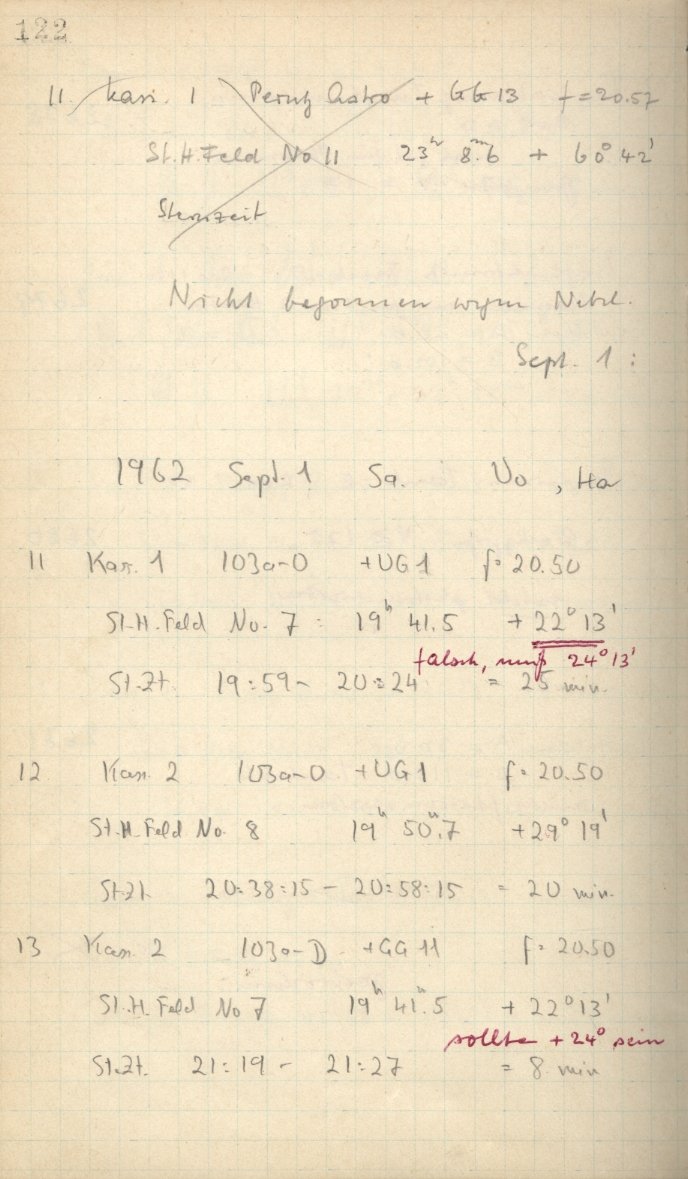 122
11 Kass. 1 Perutz Astro + GG13 f=20.57
St.H.Feld No 11 23ʰ 8ᵐ.6 + 60° 42'
Sternzeit
Nicht begonnen wegen Nebel.
Sept. 1:
1962 Sept. 1 Sa. Vo, Ha
11 Kas. 1 103a-O +UG1 f= 20.50
St.H.Feld No. 7: 19ʰ 41.5 + 22° 13'
falsch, muß 24° 13'
St.Zt. 19:59 - 20:24 = 25 min.
12 Kas. 2 103a-O +UG1 f= 20.50
St.H.Feld No. 8 19ʰ 50ᵐ.7 +29° 19'
St.Zt. 20:38:15 - 20:58:15 = 20 min.
13 Kas. 2 103a-D +GG11 f= 20.50
St.H.Feld No 7 19ʰ 41ᵐ.5 + 22° 13'
sollte +24° sein
St.Zt. 21:19 - 21:27 = 8 min